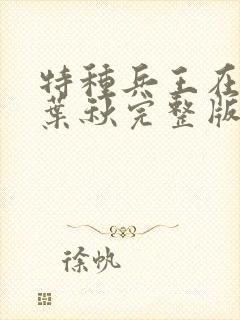 特種兵王在
葉秋完整版
徐帆